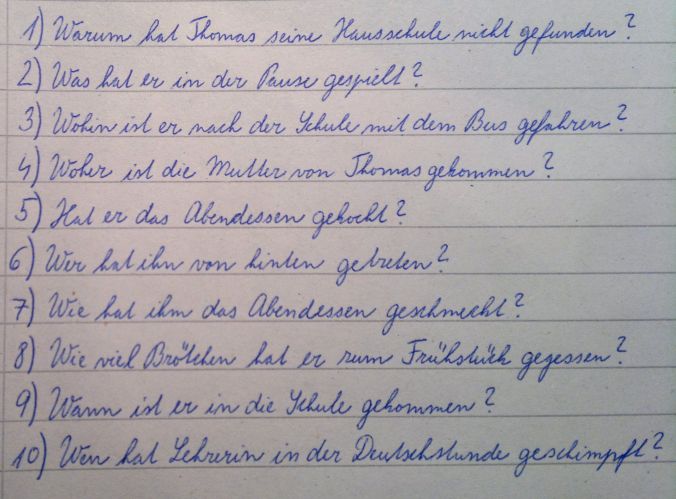 1) Warum hat Thomas seine Hausschule nicht gefunden?
2) Was hat er in der Pause gespielt?
3) Wohin ist er nach der Schule mit dem Bus gefahren?
4) Woher ist die Mutter von Thomas gekommen?
5) Hat er das Abendessen gekocht?
6) Wer hat ihn von hinten getreten?
7) Wie hat ihm das Abendessen geschmeckt?
8) Wie viel Brötchen hat er zum Frühstück gegessen?
9) Wann ist er in die Schule gekommen?
10) Wen hat Lehrerin in der Deutschstunde geschimpft?